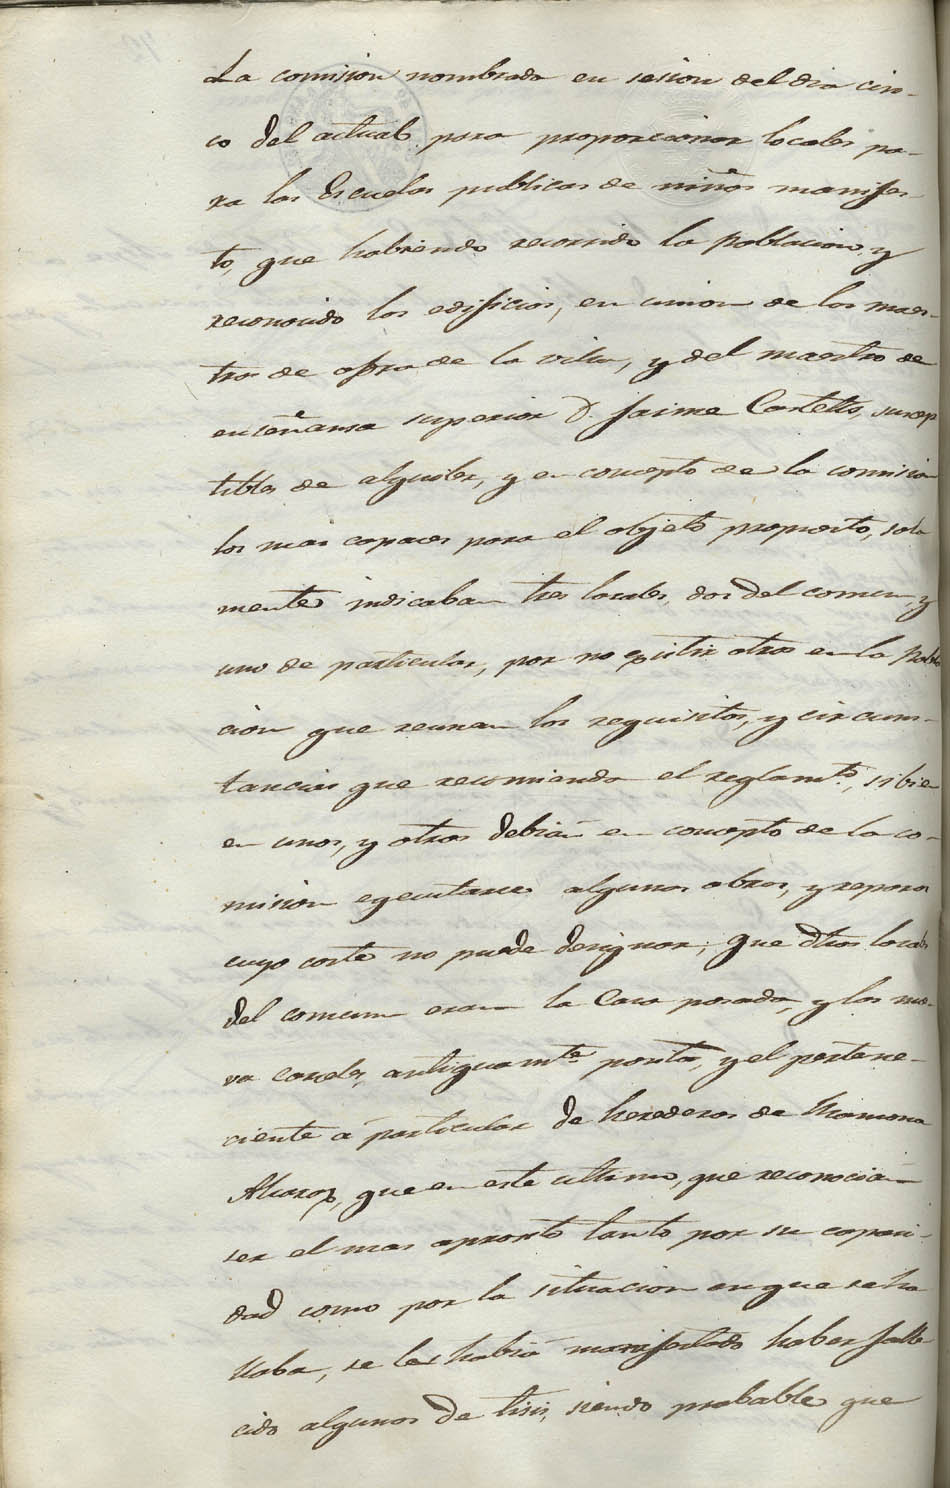 La comision nombrada en sesion del dia cin-
co del actual, para proporcionar locales pa-
ra las Escuelas publicas de niños manifes-
to, que habiendo recorrido la Poblacion, y
reconocido los edificios, en union de los maes-
tros de obra de la villa, y del maestro de
enseñansa superior D. Jaime Castells, sucep
tibles de alquiler, y en concepto de la comision
los mas capaces para el objeto propuesto, sola
mente indicaban tres locales, dos del comun, y
uno de particular, por no existir otros en la Pobla
cion que reunan los requisitos, y circums-
tancias que recomienda el reglamto, si bien
en unos, y otros debian en concepto de la co-
mision egecutarse algunas obras, y reparos
cuyo coste no puede designar; que dhos locales
del comun eran la Casa posada, y las nue-
va carcles, antiguamte, y el pertene-
ciente á particular de herederos de Mariana
que en este ultimo, que reconocian
ser el mas apronto tanto por su capaci-
dad como por la situacion en que se ha
llaba, se les habia manifestado haber falle
cido algunos de tisis, siendo probable que